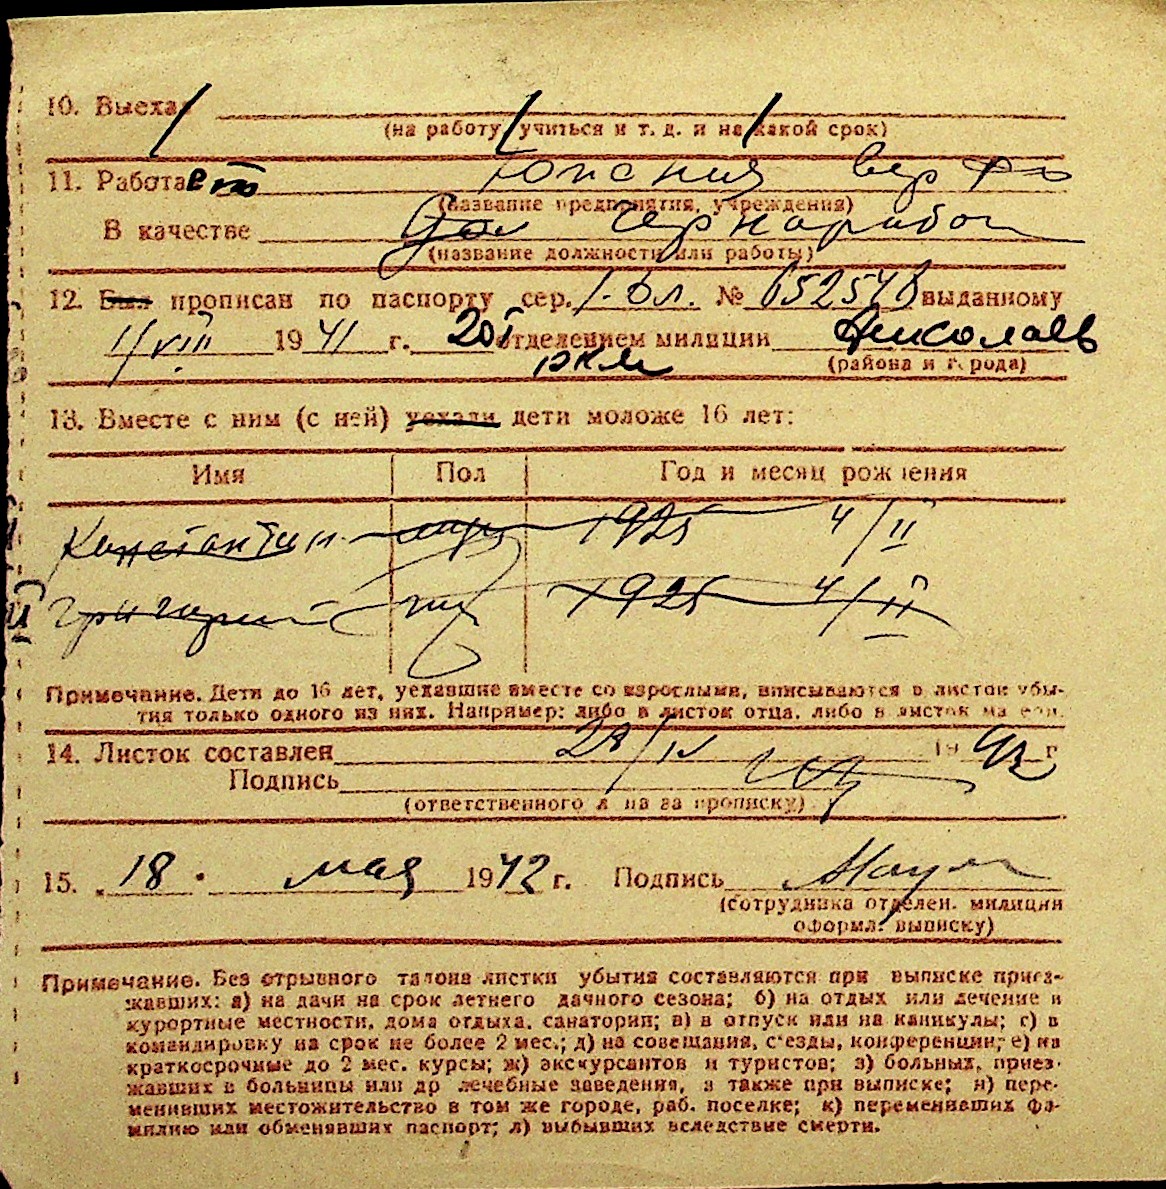 10. Выеха
(на работу, учиться и т. д. и на какой срок)
11. Работает Южная верфь
(название предприятия, учреждения)
В качестве чернорабоч
(название должности или работы)
12. Был прописан по паспорту сер. № 652546 выданному
11/VIII 1941 г. 20 отделением милиции Николаев
ркм (района и города)
13. Вместе с ним (с ней) уехали дети моложе 16 лет:
Имя Пол Год и месяц рождения
Константин муж 1925 4/II
Григорий м 1925 4/II
Примечание. Дети до 16 лет, уехавшие вместе со взрослыми, вписываются в листок убы-
тия только одного из них. Например: либо в листок отца, либо в листок матери.
14. Листок составлен 28/IV 1942 г
Подпись
(ответственного лица за прописку)
15. 18 · мая 1942 г. Подпись
(сотрудника отделен. милиции
оформл. выписку)
Примечание. Без отрывного талона листки убытия составляются при выписке приез-
жавших: а) на дачи на срок летнего дачного сезона; б) на отдых или лечение в
курортные местности, дома отдыха, санатории; в) в отпуск или на каникулы; г) в
командировку на срок не более 2 мес.; д) на совещания, с'езды, конференции; е) на
краткосрочные до 2 мес. курсы; ж) экскурсантов и туристов; з) больных, приез-
жавших в больницы или др лечебные заведения, а также при выписке; и) пере-
менивших местожительство в том же городе, раб. поселке; к) переменивших фа-
милию или обменявших паспорт; л) выбывших вследствие смерти.